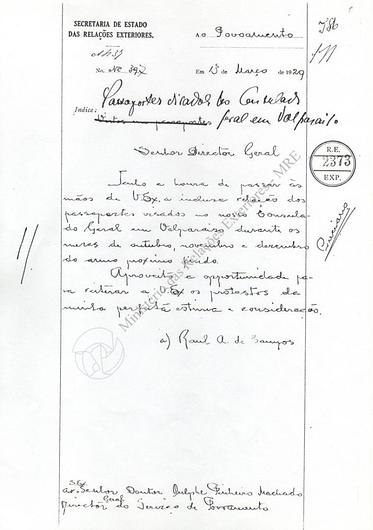 SECRETARIA DE ESTADO
DAS RELAÇÕES EXTERIORES.
Ao Povoamento
No. NE 397
Em 13 de Março de 1929
Indice: Passaportes visados do Consulado
Vistos em passaportes Geral em Valparaiso
Senhor Director Geral
R.E.
2373
EXP.
Tenho a honra de passar ás
mãos de V.Ex. a inclusa relação dos
passaportes visados no nosso Consula-
do Geral em Valparaiso durante os
mezes de outubro, novembro e dezembro
do anno proximo findo.
Aproveito a opportunidade pa-
ra reiterar a V.Ex os protestos da
minha perfeita estima e consideração.
a) Raul A. de Campos
Ministério das Relações Exteriores - MRE
S.Ex.
ao Senhor Doutor Dulphe Pinheiro Machado
Director Geral do Serviço de Povoamento